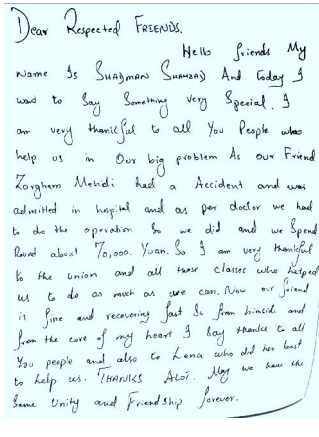 Dear Respected FRIENDS.
Hello friends My
Name Is SHADMAN SHAHZAD And today I
want to Say Something Very Special. I
am very thankful to all You People who
help us in Our big problem As our Friend
Zorgham Mehidi had a Accident and was
admitted in hospital and as per doctor we had
to do the operation So we did and we Spend
Round about 70,000. Yuan. So I am very thankful
to the union and all those classes who helped
us to do as much as we can. Now our friend
is fine and recovering fast So from himside and
from the core of my heart I Say thanks to all
You people and also to Lena who did her best
to help us. THANKS Alot. May we have the
Same Unity and Friendship forever.